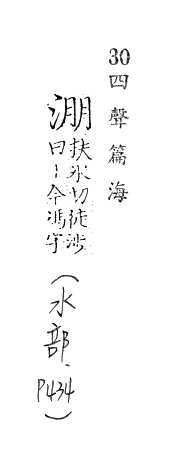 30四聲篇海
淜扶氷切徒涉
曰〻今馮字
(水部、P.434)